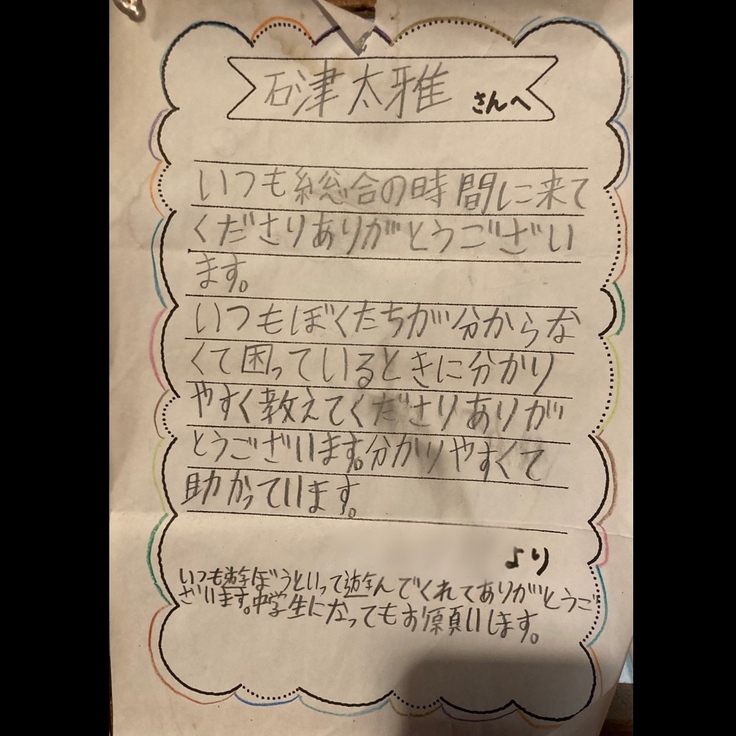 石津太雅 さんへ
いつも総合の時間に来て
くださりありがとうござい
ます。
いつもぼくたちが分からな
くて困っているときに分かり
やすく教えてくださりありが
とうございます。分かりやすくて
助かっています。
より
いつも遊ぼうといって遊んでくれてありがとうご
ざいます。中学生になってもお願いします。